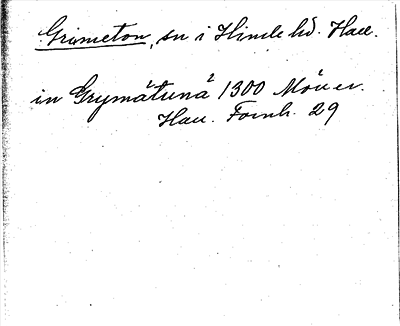 Grimeton, sn i Himle hd. Hall.
in Grymätunä 1300 Möller.
Hall. Fornh. 29